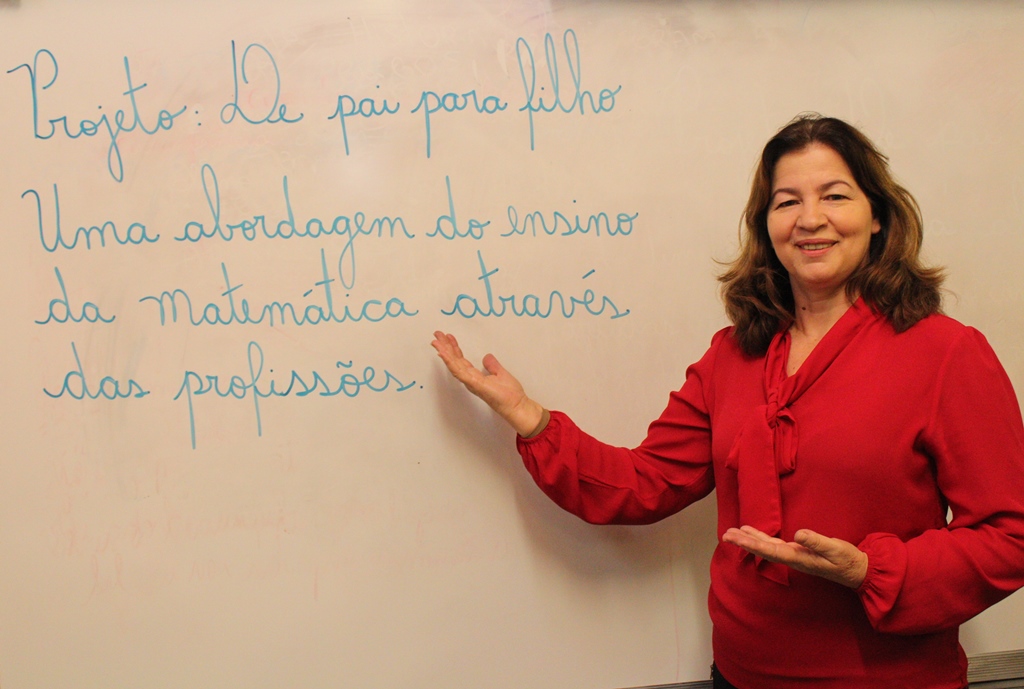 Projeto: De pai para filho
Uma abordagem do ensino
da matemática através
das profissões.